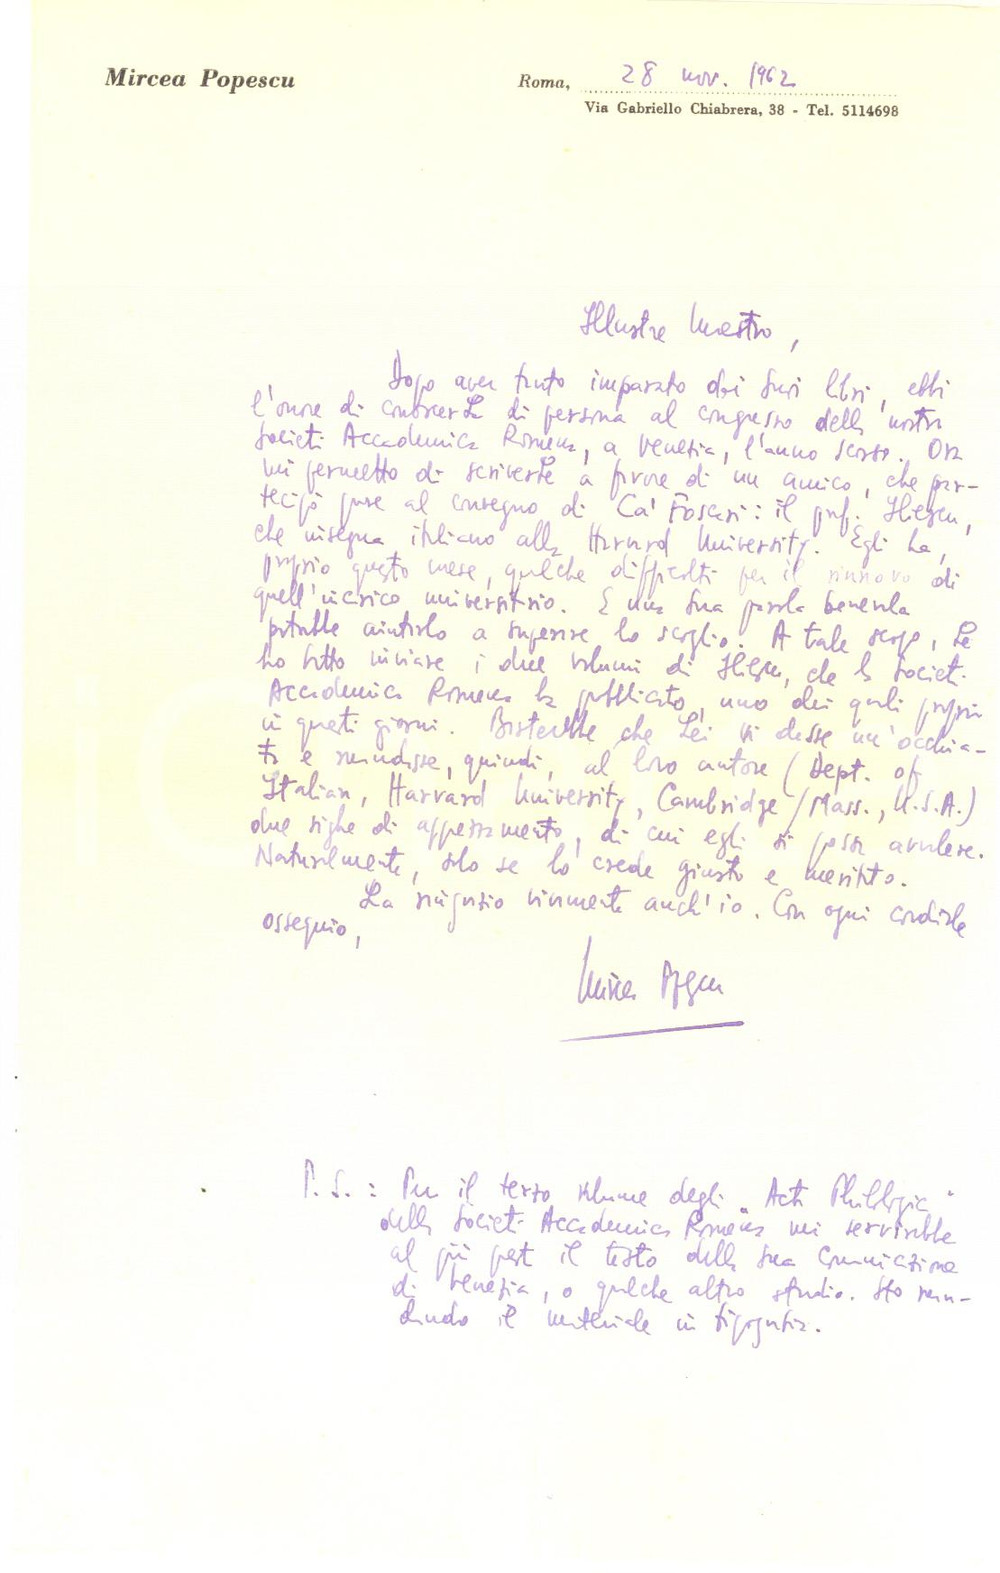 Mircea Popescu
Roma, 28 nov. 1962
Via Gabriello Chiabrera, 38 - Tel. 5114698
Illustre Maestro,
Dopo aver tanto imparato dai Suoi libri, ebbi
l'onore di conoscerLa di persona al congresso della nostra
Società Accademica Romena, a Venezia, l'anno scorso. Ora
mi permetto di scriverLe a favore di un amico, che par-
tecipò pure al convegno di Ca' Foscari: il prof. Iliescu,
che insegna italiano alla Harvard University. Egli ha,
proprio questo mese, qualche difficoltà per il rinnovo di
quell'incarico universitario. E una Sua parola benevola
potrebbe aiutarlo a superare lo scoglio. A tale scopo, Le
ho fatto inviare i due volumi di Iliescu, che la Società
Accademica Romena ha pubblicato, uno dei quali proprio
in questi giorni. Basterebbe che Lei vi desse un'occhia-
ta e mandasse, quindi, al loro autore (Dept. of
Italian, Harvard University, Cambridge/Mass., U.S.A.)
due righe di apprezzamento, di cui egli si possa avvalere.
Naturalmente, solo se lo crede giusto e meritato.
La ringrazio vivamente anch'io. Con ogni cordiale
ossequio,
Mircea Popescu
P.S.: Per il terzo volume degli "Acta Philologica"
della Società Accademica Romena mi servirebbe
al più presto il testo della Sua comunicazione
di Venezia, o qualche altro studio. Sto man-
dando il materiale in tipografia.